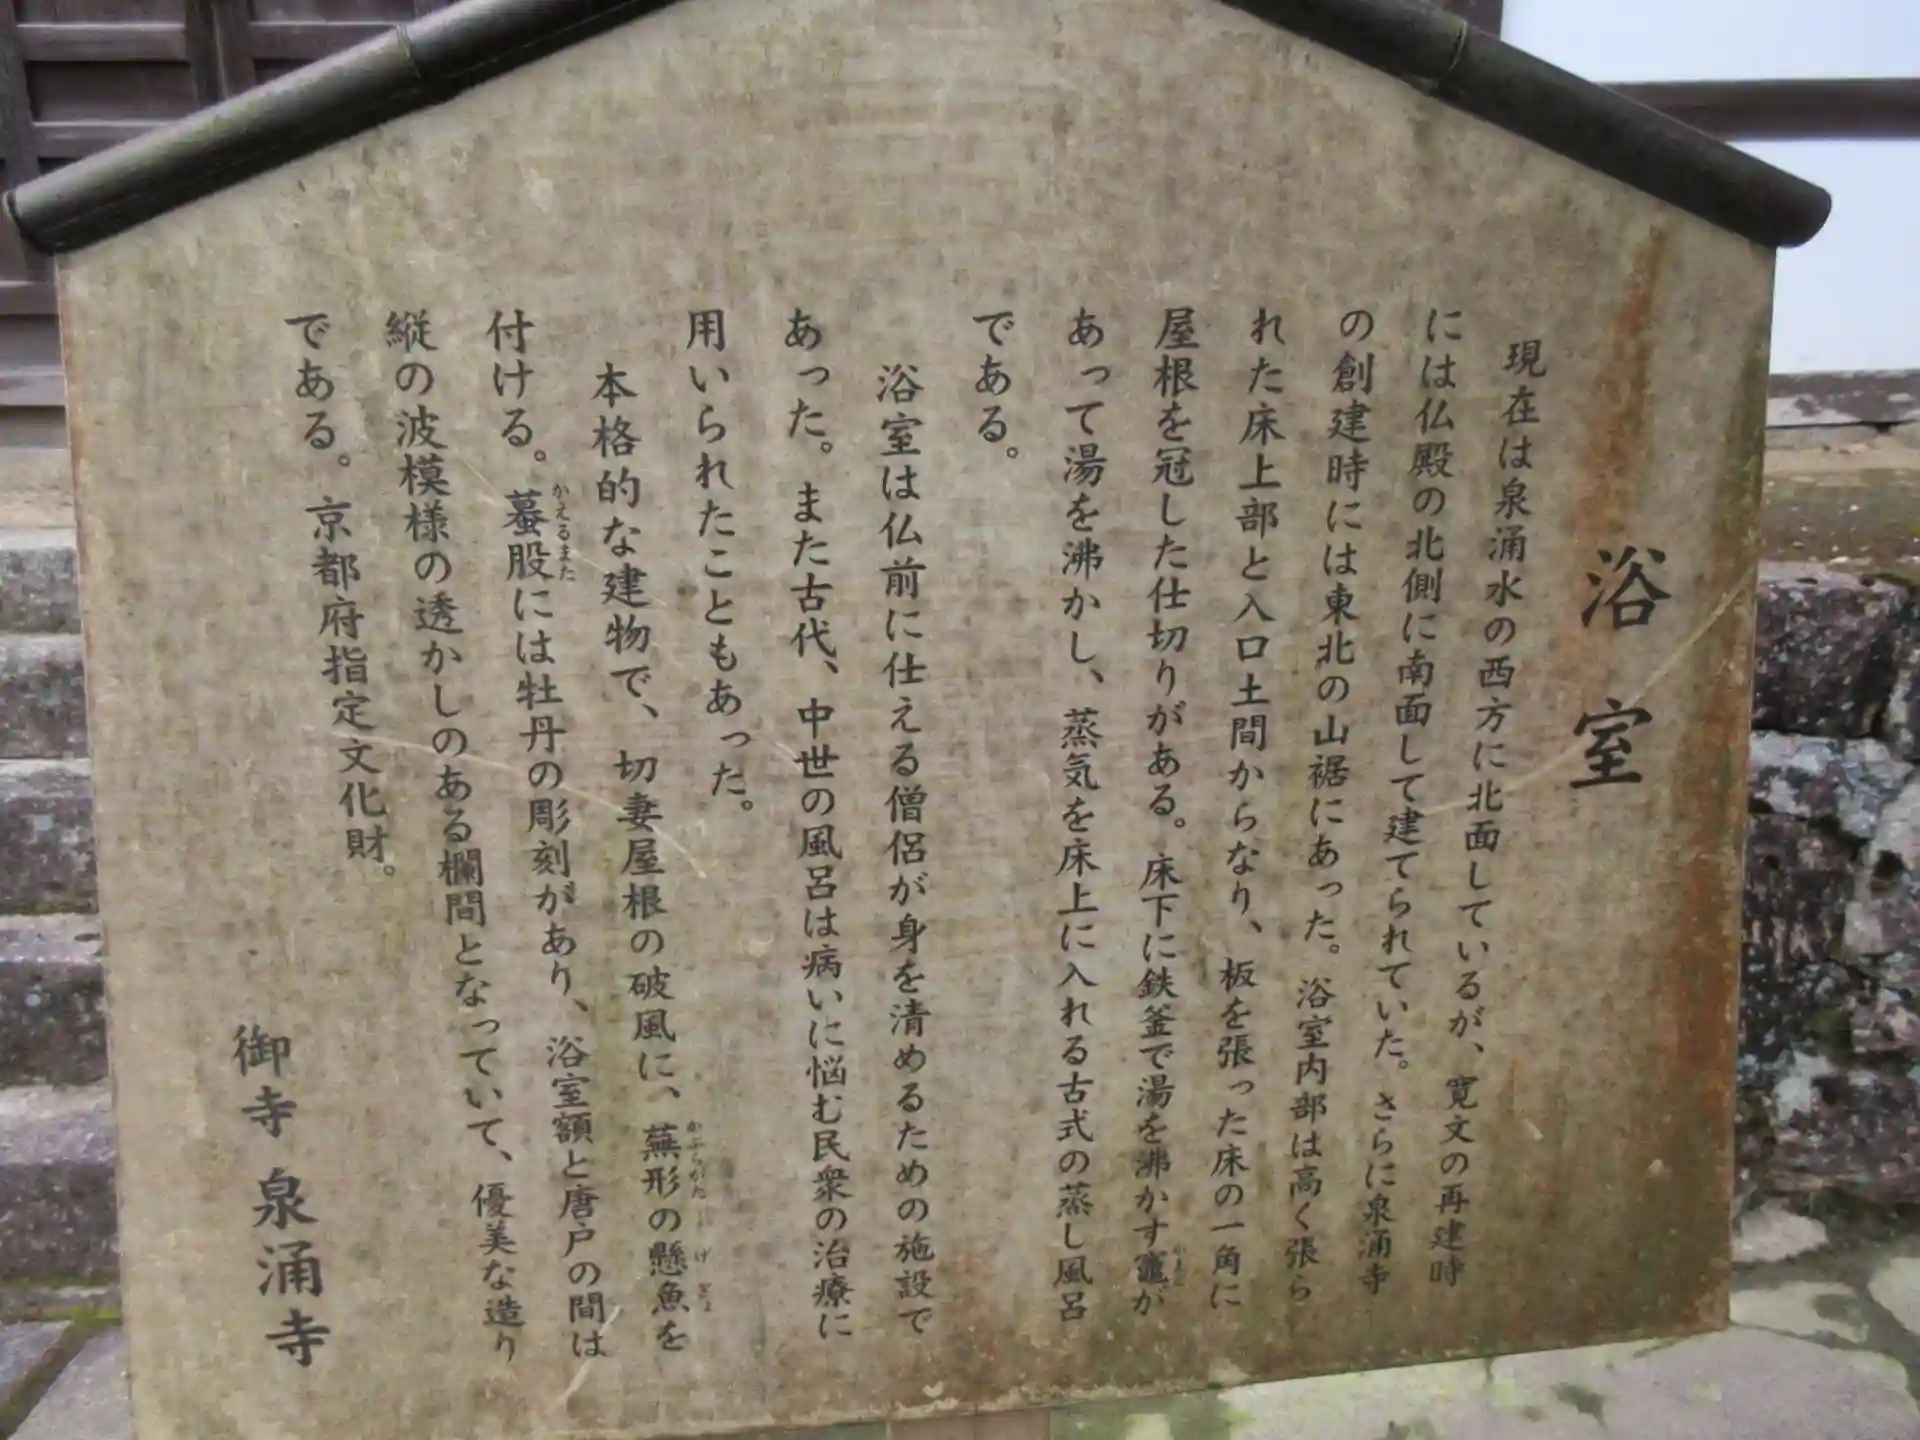 浴室
現在は泉涌水の西方に北面しているが、寛文の再建時
には仏殿の北側に南面して建てられていた。さらに泉涌寺
の創建時には東北の山裾にあった。浴室内部は高く張ら
れた床上部と入口土間からなり、板を張った床の一角に
屋根を冠した仕切りがある。床下に鉄釜で湯を沸かす竈が
かまど
あって湯を沸かし、蒸気を床上に入れる古式の蒸し風呂
である。
浴室は仏前に仕える僧侶が身を清めるための施設で
あった。また古代、中世の風呂は病いに悩む民衆の治療に
用いられたこともあった。
本格的な建物で、切妻屋根の破風に、蕪形の懸魚を
かぶらがた げぎょ
付ける。蟇股には牡丹の彫刻があり、浴室額と唐戸の間は
かえるまた
縦の波模様の透かしのある欄間となっていて、優美な造り
である。京都府指定文化財。
御寺 泉涌寺